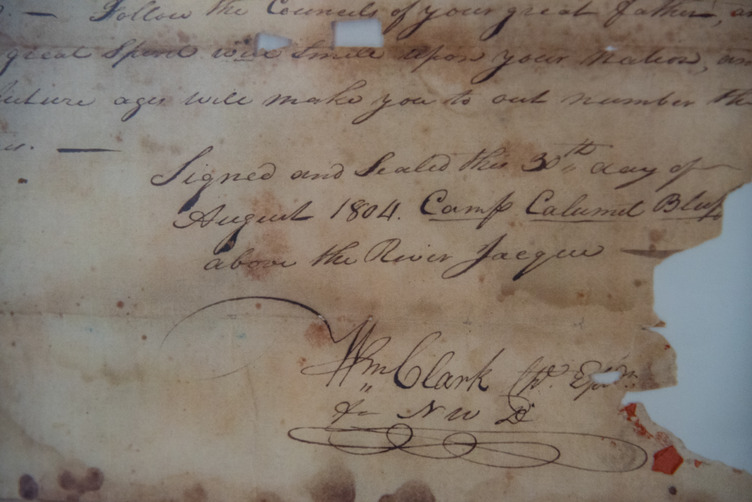 — Follow the Councils of your great father, a
great Spirit will Smile upon your nation, an
future ages will make you to out number the
Signed and Sealed this 30th day of
August 1804. Camp Calumet Bluff
above the River Jacque —
Wm Clark
for N W D